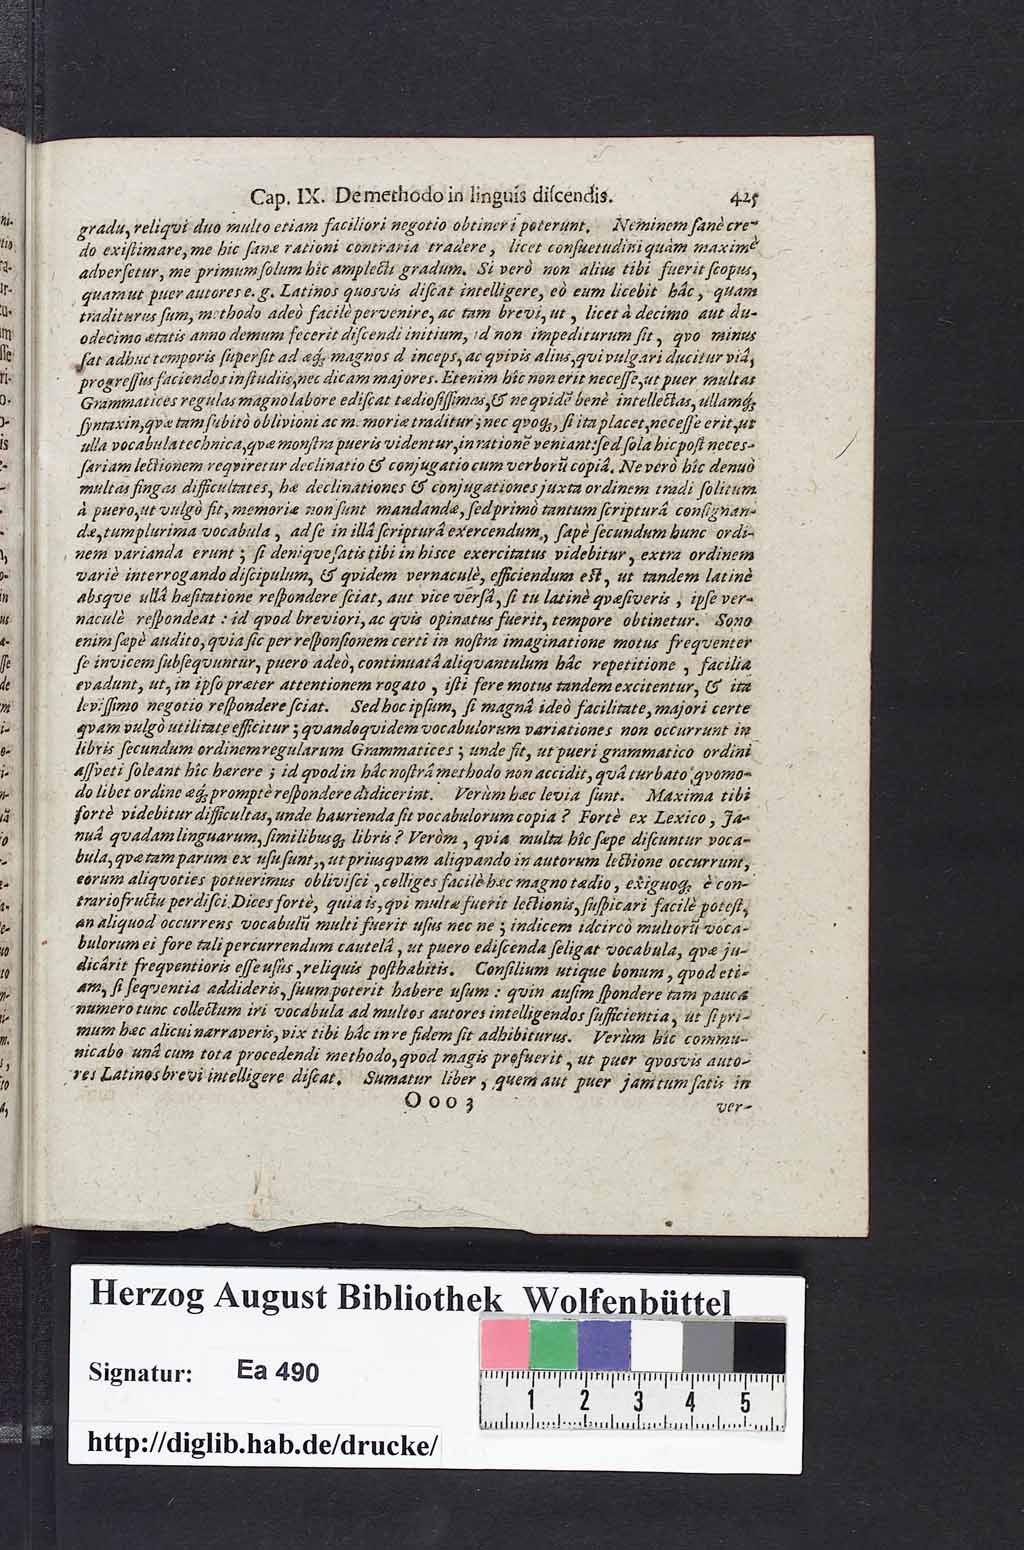 Cap. IX. De methodo in linguis diſcendis. 425
gradu, reliqvi duo multo etiam faciliori negotio obtineri poterunt. Neminem ſanè cre-
do exiſtimare, me hic ſanæ rationi contraria tradere, licet conſuetudini quàm maximè
adverſetur, me primum ſolum hîc amplecti gradum. Si verò non alius tibi fuerit ſcopus,
quam ut puer autores e. g. Latinos quosvis diſcat intelligere, eò eum licebit hâc, quam
traditurus ſum, methodo adeò facilè pervenire, ac tam brevi, ut, licet à decimo aut du-
odecimo ætatis anno demum fecerit diſcendi initium, id non impediturum ſit, qvo minus
ſat adhuc temporis ſuperſit ad æq; magnos d inceps, ac qvivis alius, qvi vulgari ducitur viâ,
progreſſus faciendos in ſtudiis, nec dicam majores. Etenim hîc non erit neceſſe, ut puer multas
Grammatices regulas magno labore ediſcat tædioſiſſimas, & ne qvidē benè intellectas, ullamq;
ſyntaxin, qvæ tam ſubitò oblivioni ac m.moriæ traditur; nec qvoq;, ſi ita placet, neceſſe erit, ut
ulla vocabula technica, qvæ monſtra pueris videntur, in rationē veniant: ſed ſola hic poſt neces-
ſariam lectionem reqviretur declinatio & conjugatio cum verborū copiâ. Ne verò hîc denuò
multas fingas difficultates, hæ declinationes & conjugationes juxta ordinem tradi ſolitum
à puero, ut vulgò fit, memoriæ non ſunt mandandæ, ſed primò tantum ſcripturâ conſignan-
dæ, tum plurima vocabula, ad ſe in illâ ſcripturâ exercendum, ſæpè ſecundum hunc ordi-
nem varianda erunt; ſi denique ſatis tibi in hisce exercitatus videbitur, extra ordinem
variè interrogando diſcipulum, & qvidem vernaculè, efficiendum eſt, ut tandem latinè
absqve ullâ hæſitatione reſpondere ſciat, aut vice verſâ, ſi tu latinè qvæſiveris, ipſe ver-
naculè reſpondeat: id qvod breviori, ac qvis opinatus fuerit, tempore obtinetur. Sono
enim ſæpè audito, qvia ſic per reſponſionem certi in noſtra imaginatione motus freqventer
ſe invicem ſubſeqvuntur, puero adeò, continuatâ aliqvantulum hâc repetitione, facilia
evadunt, ut, in ipſo præter attentionem rogato, iſti fere motus tandem excitentur, & ita
leviſſimo negotio reſpondere ſciat. Sed hoc ipſum, ſi magnâ ideò facilitate, majori certe
qvam vulgò utilitate efficitur; qvandoqvidem vocabulorum variationes non occurrunt in
libris ſecundum ordinem regularum Grammatices; unde fit, ut pueri grammatico ordini
aſſveti ſoleant hîc hærere; id qvod in hâc noſtrâ methodo non accidit, qvâ turbato qvomo-
do libet ordine æq; promptè reſpondere didicerint. Verùm hæc levia ſunt. Maxima tibi
fortè videbitur difficultas, unde haurienda ſit vocabulorum copia? Fortè ex Lexico, Ja-
nuâ quadam linguarum, ſimilibusq; libris? Verùm, qvia multa hîc ſæpe diſcuntur voca-
bula, qvæ tam parum ex uſu ſunt, ut priusqvam aliqvando in autorum lectione occurrunt,
eorum aliqvoties potuerimus obliviſci, colliges facilè hæc magno tædio, exiguoq; è con-
trario fructu perdiſci. Dices fortè, quia is, qvi multæ fuerit lectionis, ſuſpicari facilè poteſt,
an aliquod occurrens vocabulū multi fuerit uſus nec ne; indicem idcircò multorū voca-
bulorum ei fore tali percurrendum cautelâ, ut puero ediſcenda ſeligat vocabula, qvæ ju-
dicârit freqventioris eſſe uſûs, reliquis poſthabitis. Conſilium utique bonum, qvod eti-
am, ſi ſeqventia addideris, ſuum poterit habere uſum: quin auſim ſpondere tam pauca
numero tunc collectum iri vocabula ad multos autores intelligendos ſufficientia, ut ſi pri-
mum hæc alicui narraveris, vix tibi hâc in re fidem ſit adhibiturus. Verùm hîc commu-
nicabo unâ cum tota procedendi methodo, qvod magis profuerit, ut puer qvosvis auto-
res Latinos brevi intelligere diſcat. Sumatur liber, quem aut puer jam tum ſatis in
Ooo 3 ver-
Herzog August Bibliothek Wolfenbüttel
Signatur: Ea 490
1 2 3 4 5
http://diglib.hab.de/drucke/